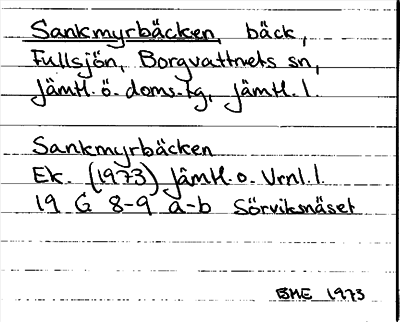 Sankmyrbäcken, bäck,
Fullsjön, Borgvattnets sn,
Jämtl. ö. doms.tg, Jämtl. l.
Sankmyrbäcken
Ek. (1973) Jämtl. o. Vrnl. l.
19 G 8-9 a-b Sörviksnäset
BME 1973